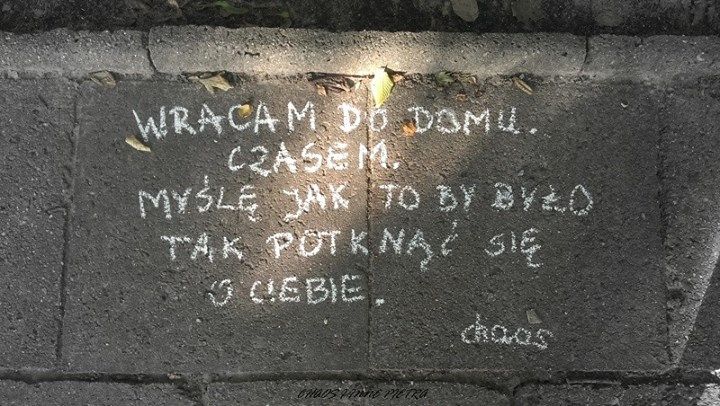 WRACAM DO DOMU.
CZASEM.
MYŚLĘ JAK TO BY BYŁO
TAK POTKNĄĆ SIĘ
O CIEBIE.
chaos
CHAOS I INNE PIĘTRA